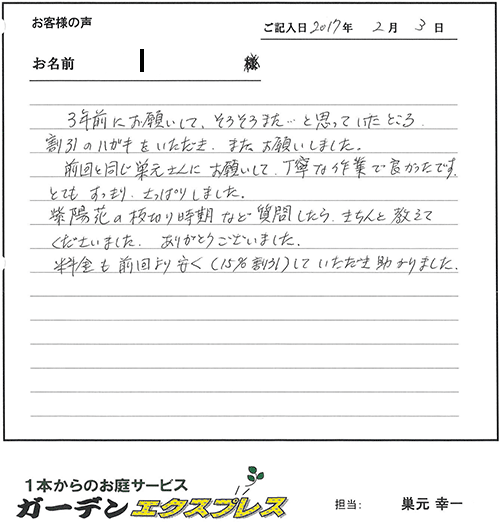 お客様の声
ご記入日 2017年 2月 3日
お名前 様
3年前にお願いして、そろそろまた…と思っていたところ
割引のハガキをいただき、またお願いしました。
前回と同じ巣元さんにお願いして、丁寧な作業で良かったです。
とてもすっきり、さっぱりしました。
紫陽花の枝切り時期など質問したら、きちんと教えて
くださいました。ありがとうございました。
料金も前回より安く(15%割引)していただき助かりました。
1本からのお庭サービス
ガーデンエクスプレス
担当: 巣元 幸一